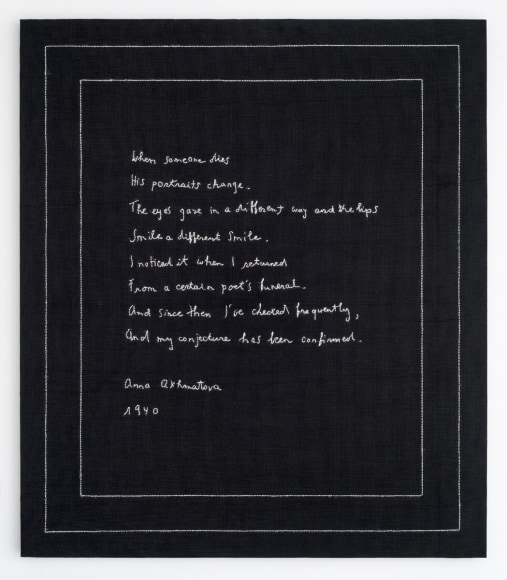 When someone dies
His portraits change.
The eyes gaze in a different way and the lips
Smile a different Smile.
I noticed it when I returned
From a certain poet's funeral.
And since then I've checked frequently,
And my conjecture has been confirmed.
Anna Akhmatova
1940